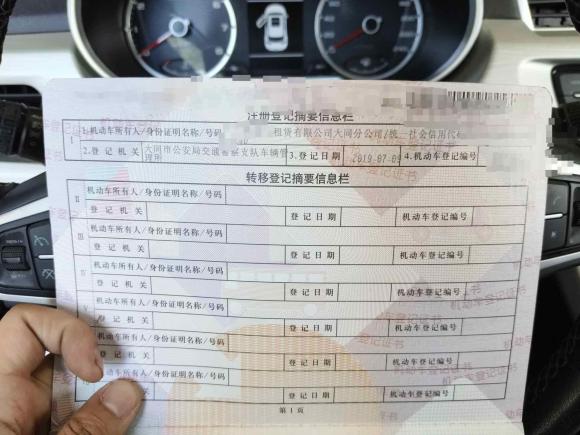 注册登记摘要信息栏
I 1.机动车所有人/身份证明名称/号码 租赁有限公司大同分公司/统一社会信用代码
2.登记机关 大同市公安局交通警察支队车辆管理所 3.登记日期 2019-07-09 4.机动车登记编号
转移登记摘要信息栏
II 机动车所有人/身份证明名称/号码
登记机关 登记日期 机动车登记编号
III 机动车所有人/身份证明名称/号码
登记机关 登记日期 机动车登记编号
IV 机动车所有人/身份证明名称/号码
登记机关 登记日期 机动车登记编号
V 机动车所有人/身份证明名称/号码
登记机关 登记日期 机动车登记编号
机动车所有人/身份证明名称/号码
登记机关 登记日期 机动车登记编号
机动车所有人/身份证明名称/号码
登记机关 登记日期 机动车登记编号
第1页